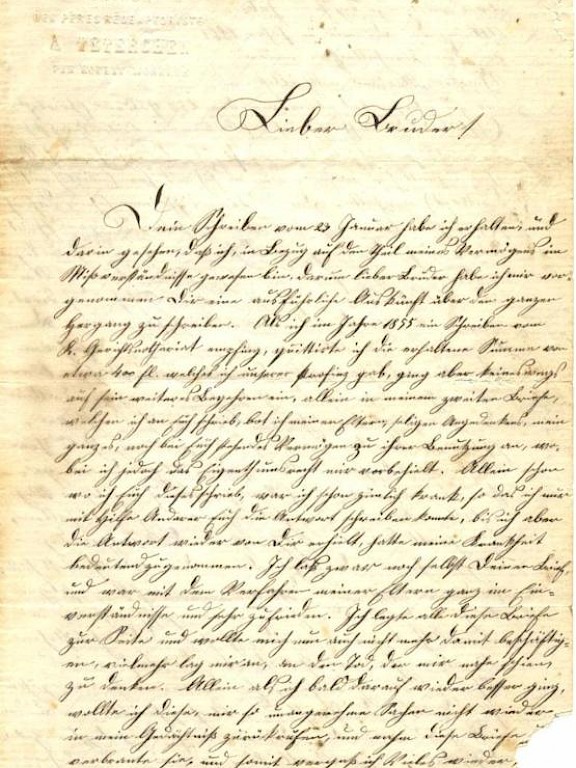 DES PERES REDEMPTORISTES
A TETERCHEN
Lieber Bruder!
Dein Schreiben vom 23 Januar habe ich erhalten, und
darin gesehen, daß ich, in Bezug auf den Theil meines Vermögens im
Mißverständnisse gewesen bin, darum lieber Bruder habe ich mir vor-
genommen Dir eine ausführliche Auskunft über den ganzen
Hergang zu schreiben. Als ich im Jahre 1855 ein Schreiben vom
K. Gerichtsnotariat empfing, quittirte ich die erhaltene Summe von
etwa 400 fl. welches ich unserer Provinz gab, ging aber keineswegs
auf sein weiteres Begehren ein, allein in meinem zweiten Briefe,
welchen ich an Euch schrieb, bot ich meinen Eltern, seligen Angedenkens, mein
ganzes, noch bei Euch stehendes Vermögen zu ihrer Benutzung an, wo-
bei ich jedoch das Eigenthumsrecht mir vorbehielt. Allein schon
wo ich Euch dieses schrieb, war ich schon zimlich krank, so das ich nur
mit Hilfe Anderer Euch die Antwort schreiben konnte, bis ich aber
die Antwort wieder von Dir erhielt, hatte meine Krankheit
bedeutend zugenommen. Ich laß zwar noch selbst Deinen Brief,
und war mit dem Verfahren meiner Eltern ganz im Ein-
verständnisse und sehr zufrieden. Ich legte alle diese Briefe
zur Seite und wollte mich nun auch nicht mehr damit beschäftig-
en, vielmehr lag mir an, an den Tod, der mir nahe schien,
zu denken. Allein als es bald darauf wieder besser ging,
wollte ich diese, mir so unangenehme Sachen nicht wieder
in mein Gedächtniß zurückrufen, und nahm diese Briefe
verbrante sie, und somit vergaß ich Vieles wieder,